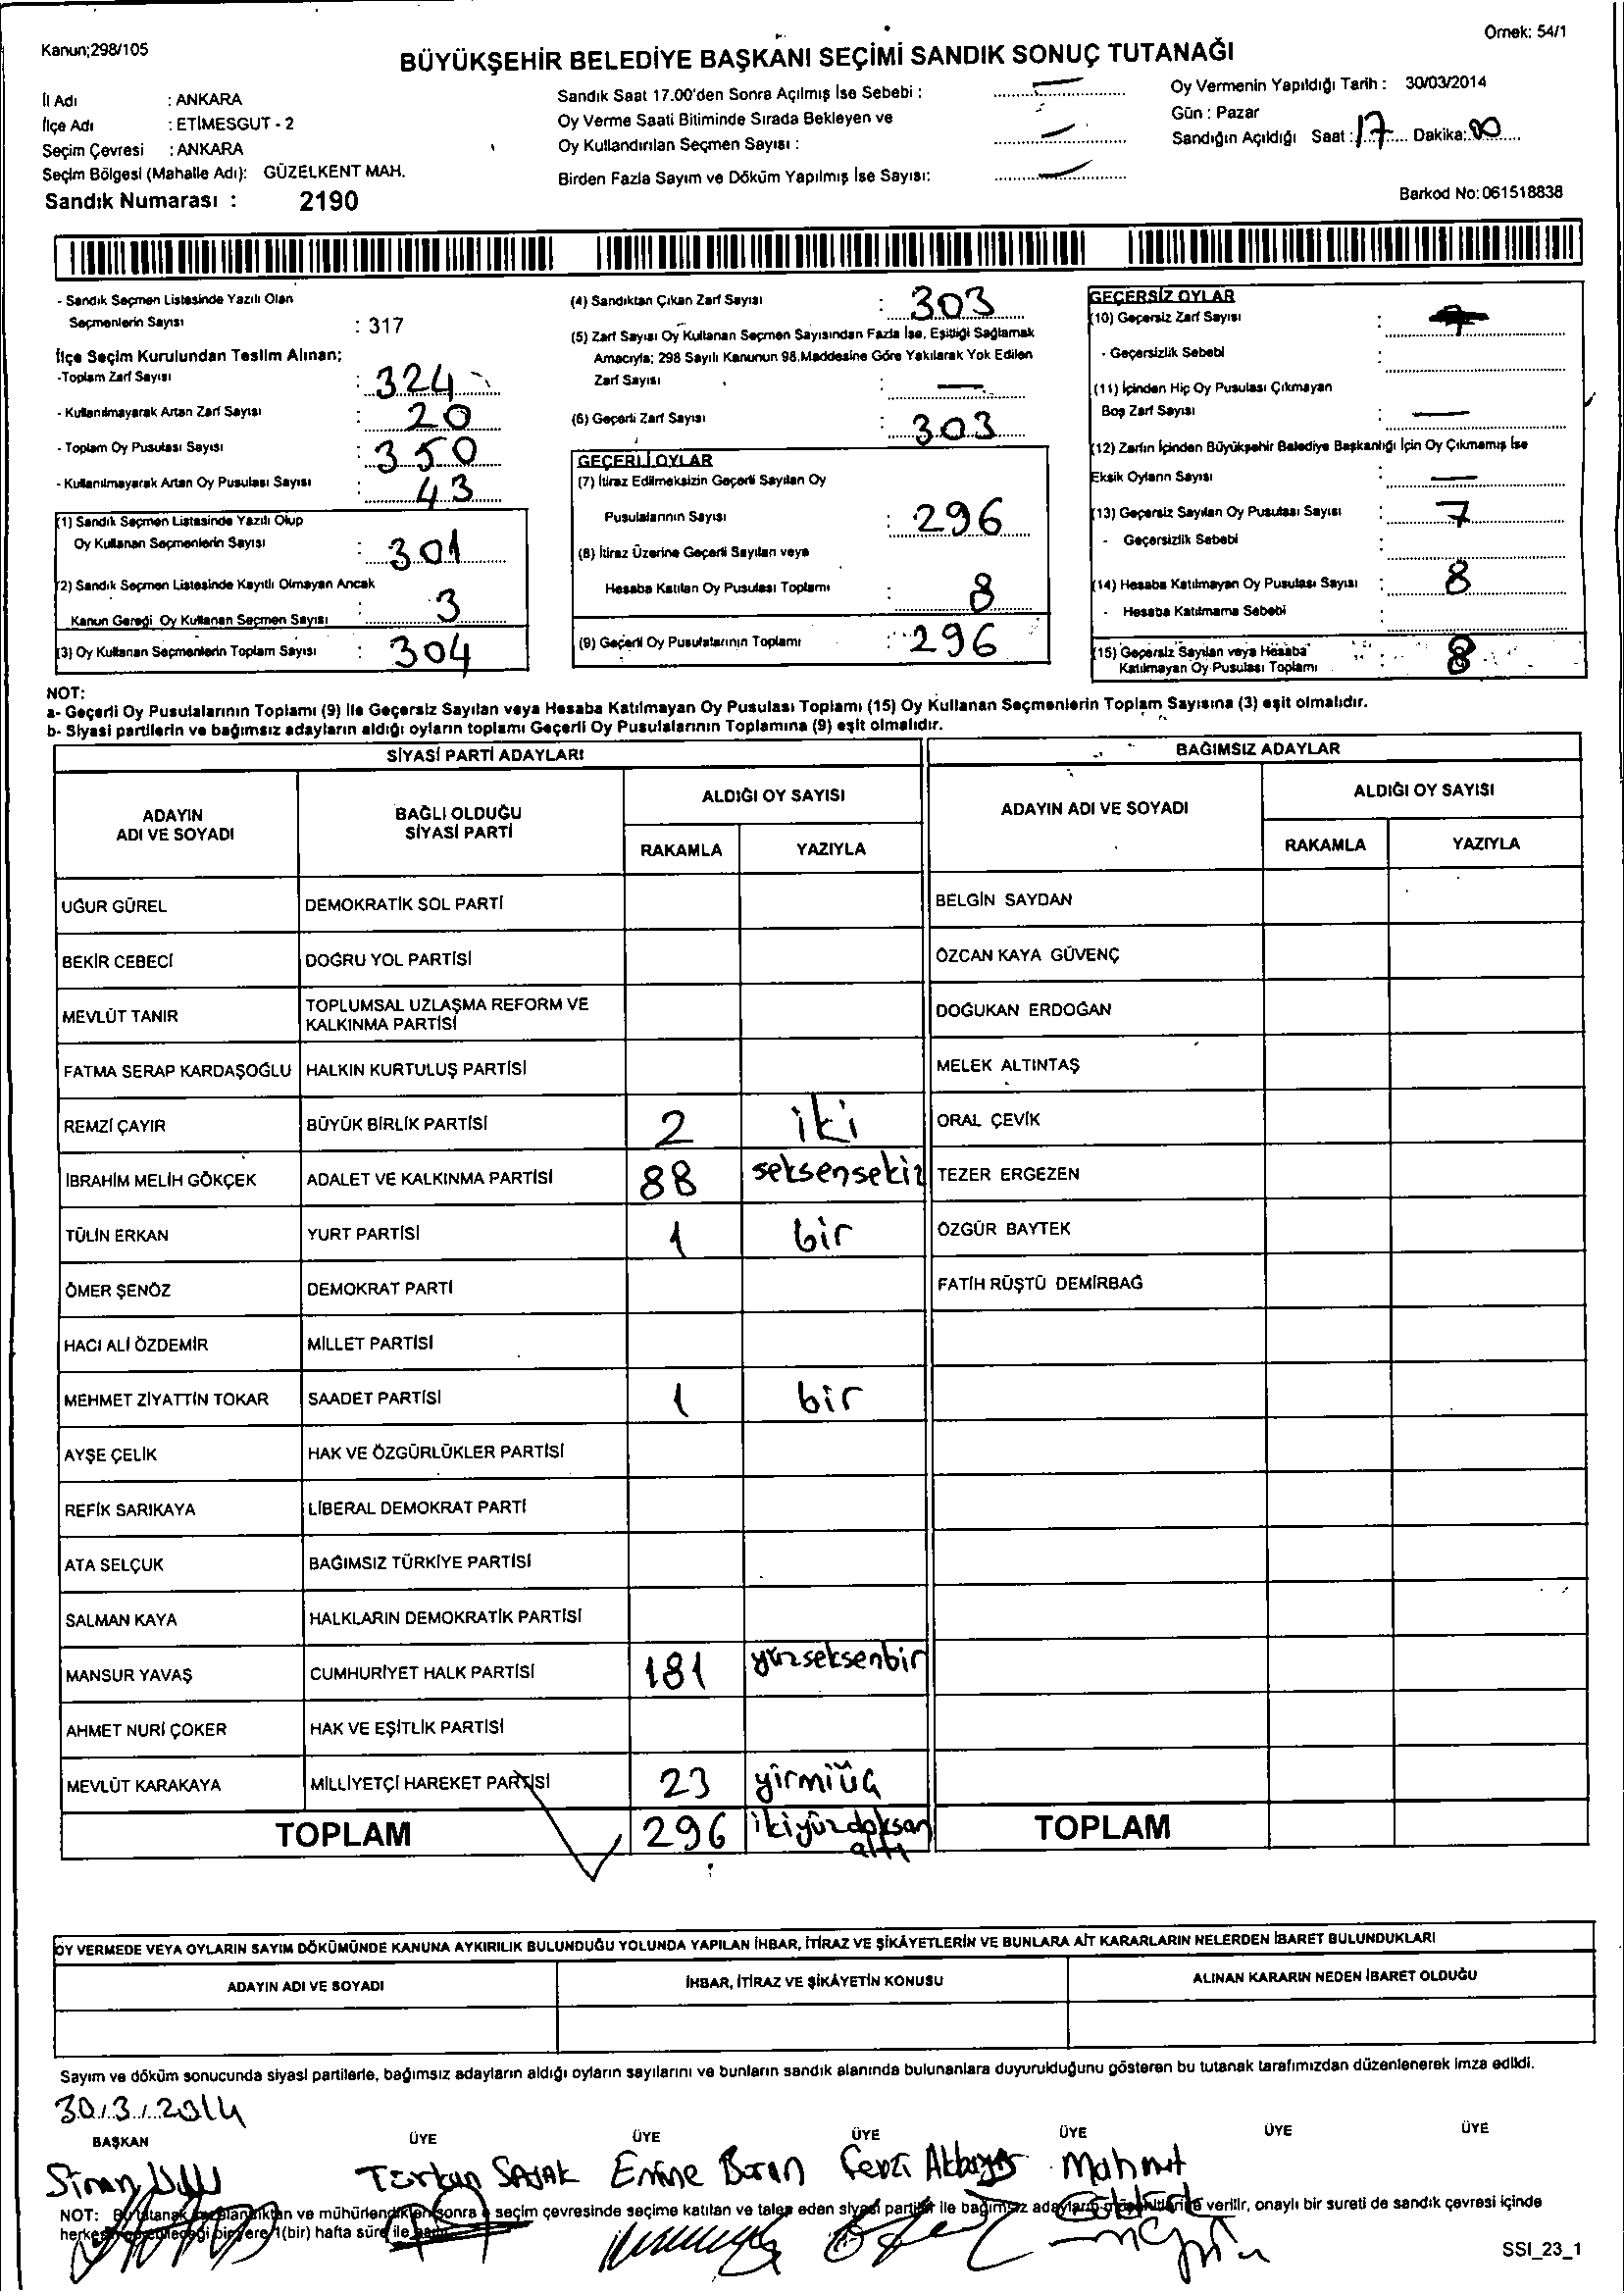 Kanun;298/105
Örnek: 54/1
BÜYÜKŞEHİR BELEDİYE BAŞKANI SEÇİMİ SANDIK SONUÇ TUTANAĞI
İl Adı : ANKARA
İlçe Adı : ETİMESGUT - 2
Seçim Çevresi : ANKARA
Seçim Bölgesi (Mahalle Adı): GÜZELKENT MAH.
Sandık Numarası : 2190
Sandık Saat 17.00'den Sonra Açılmış İse Sebebi : —
Oy Verme Saati Bitiminde Sırada Bekleyen ve
Oy Kullandırılan Seçmen Sayısı : —
Birden Fazla Sayım ve Döküm Yapılmış İse Sayısı: —
Oy Vermenin Yapıldığı Tarih : 30/03/2014
Gün : Pazar
Sandığın Açıldığı Saat : 17 Dakika: 00
Barkod No: 061518838
- Sandık Seçmen Listesinde Yazılı Olan
Seçmenlerin Sayısı : 317
İlçe Seçim Kurulundan Teslim Alınan;
-Toplam Zarf Sayısı : 324
- Kullanılmayarak Artan Zarf Sayısı : 20
- Toplam Oy Pusulası Sayısı : 350
- Kullanılmayarak Artan Oy Pusulası Sayısı : 43
(1) Sandık Seçmen Listesinde Yazılı Olup
Oy Kullanan Seçmenlerin Sayısı : 301
(2) Sandık Seçmen Listesinde Kayıtlı Olmayan Ancak
Kanun Gereği Oy Kullanan Seçmen Sayısı : 3
(3) Oy Kullanan Seçmenlerin Toplam Sayısı : 304
(4) Sandıktan Çıkan Zarf Sayısı : 303
(5) Zarf Sayısı Oy Kullanan Seçmen Sayısından Fazla İse, Eşitliği Sağlamak
Amacıyla; 298 Sayılı Kanunun 98.Maddesine Göre Yakılarak Yok Edilen
Zarf Sayısı : —
(6) Geçerli Zarf Sayısı : 303
GEÇERLİ OYLAR
(7) İtiraz Edilmeksizin Geçerli Sayılan Oy
Pusulalarının Sayısı : 296
(8) İtiraz Üzerine Geçerli Sayılan veya
Hesaba Katılan Oy Pusulası Toplamı : 8
(9) Geçerli Oy Pusulalarının Toplamı : 296
GEÇERSİZ OYLAR
(10) Geçersiz Zarf Sayısı :
- Geçersizlik Sebebi :
(11) İçinden Hiç Oy Pusulası Çıkmayan
Boş Zarf Sayısı : —
(12) Zarfın İçinden Büyükşehir Belediye Başkanlığı İçin Oy Çıkmamış İse
Eksik Oyların Sayısı : —
(13) Geçersiz Sayılan Oy Pusulası Sayısı : 7
- Geçersizlik Sebebi :
(14) Hesaba Katılmayan Oy Pusulası Sayısı : 8
- Hesaba Katılmama Sebebi :
(15) Geçersiz Sayılan veya Hesaba
Katılmayan Oy Pusulası Toplamı : 8
NOT:
a- Geçerli Oy Pusulalarının Toplamı (9) İle Geçersiz Sayılan veya Hesaba Katılmayan Oy Pusulası Toplamı (15) Oy Kullanan Seçmenlerin Toplam Sayısına (3) eşit olmalıdır.
b- Siyasi partilerin ve bağımsız adayların aldığı oyların toplamı Geçerli Oy Pusulalarının Toplamına (9) eşit olmalıdır.
SİYASİ PARTİ ADAYLARI
ADAYIN
ADI VE SOYADI
BAĞLI OLDUĞU
SİYASİ PARTİ
ALDIĞI OY SAYISI
RAKAMLA YAZIYLA
BAĞIMSIZ ADAYLAR
ADAYIN ADI VE SOYADI
ALDIĞI OY SAYISI
RAKAMLA YAZIYLA
UĞUR GÜREL DEMOKRATİK SOL PARTİ BELGİN SAYDAN
BEKİR CEBECİ DOĞRU YOL PARTİSİ ÖZCAN KAYA GÜVENÇ
MEVLÜT TANIR TOPLUMSAL UZLAŞMA REFORM VE
KALKINMA PARTİSİ DOĞUKAN ERDOĞAN
FATMA SERAP KARDAŞOĞLU HALKIN KURTULUŞ PARTİSİ MELEK ALTINTAŞ
REMZİ ÇAYIR BÜYÜK BİRLİK PARTİSİ 2 iki ORAL ÇEVİK
İBRAHİM MELİH GÖKÇEK ADALET VE KALKINMA PARTİSİ 88 seksensekiz TEZER ERGEZEN
TÜLİN ERKAN YURT PARTİSİ 1 bir ÖZGÜR BAYTEK
ÖMER ŞENÖZ DEMOKRAT PARTİ FATİH RÜŞTÜ DEMİRBAĞ
HACI ALİ ÖZDEMİR MİLLET PARTİSİ
MEHMET ZİYATTİN TOKAR SAADET PARTİSİ 1 bir
AYŞE ÇELİK HAK VE ÖZGÜRLÜKLER PARTİSİ
REFİK SARIKAYA LİBERAL DEMOKRAT PARTİ
ATA SELÇUK BAĞIMSIZ TÜRKİYE PARTİSİ
SALMAN KAYA HALKLARIN DEMOKRATİK PARTİSİ
MANSUR YAVAŞ CUMHURİYET HALK PARTİSİ 181 yüzseksenbir
AHMET NURİ ÇOKER HAK VE EŞİTLİK PARTİSİ
MEVLÜT KARAKAYA MİLLİYETÇİ HAREKET PARTİSİ 23 yirmiüç
TOPLAM 296 ikiyüzdoksan
altı
TOPLAM
OY VERMEDE VEYA OYLARIN SAYIM DÖKÜMÜNDE KANUNA AYKIRILIK BULUNDUĞU YOLUNDA YAPILAN İHBAR, İTİRAZ VE ŞİKÂYETLERİN VE BUNLARA AİT KARARLARIN NELERDEN İBARET BULUNDUKLARI
ADAYIN ADI VE SOYADI İHBAR, İTİRAZ VE ŞİKÂYETİN KONUSU ALINAN KARARIN NEDEN İBARET OLDUĞU
Sayım ve döküm sonucunda siyasi partilerle, bağımsız adayların aldığı oyların sayılarını ve bunların sandık alanında bulunanlara duyurulduğunu gösteren bu tutanak tarafımızdan düzenlenerek imza edildi.
30/3/2014
BAŞKAN ÜYE ÜYE ÜYE ÜYE ÜYE ÜYE
Sinan Türkan Emine Boran Fevzi Mahmut
NOT: Bu tutanak ve mühürlendikten sonra seçim çevresinde seçime katılan ve talep eden siyasi partiler ile bağımsız adayların verilir, onaylı bir sureti de sandık çevresi içinde
bir yere 1(bir) hafta süre ile
SSI_23_1